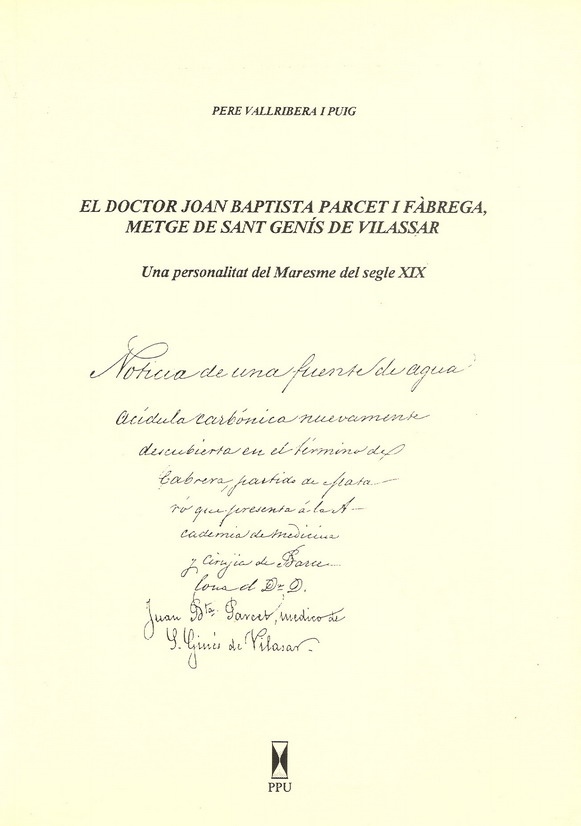 PERE VALLRIBERA I PUIG
EL DOCTOR JOAN BAPTISTA PARCET I FÀBREGA,
METGE DE SANT GENÍS DE VILASSAR
Una personalitat del Maresme del segle XIX
Noticia de una fuente de agua
acídula carbónica nuevamente
descubierta en el término de
Cabrera, partido de Mata-
ró que presenta á la A-
cademia de Medicina
y Cirujia de Barce-
lona el Dr. D.
Juan Bta. Parcet, medico de
S. Ginés de Vilasar.
PPU